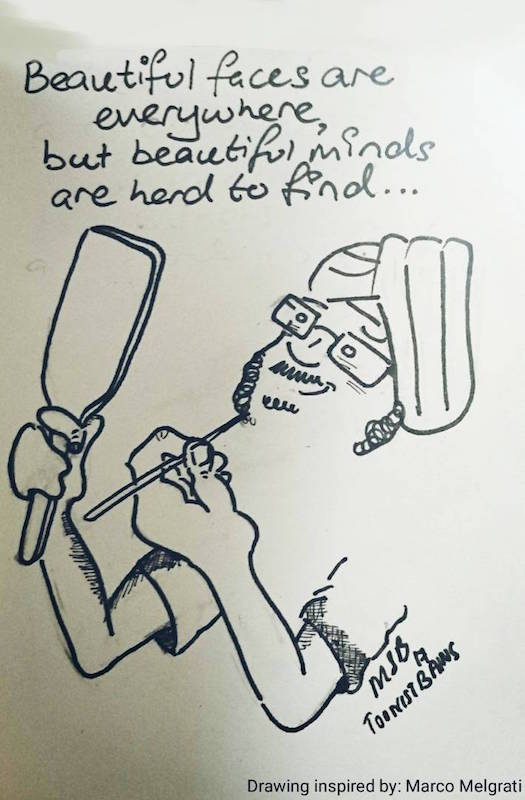 Beautiful faces are
everywhere,
but beautiful minds
are hard to find...
MSB
17
TOONIST BAINS
Drawing inspired by: Marco Melgrati